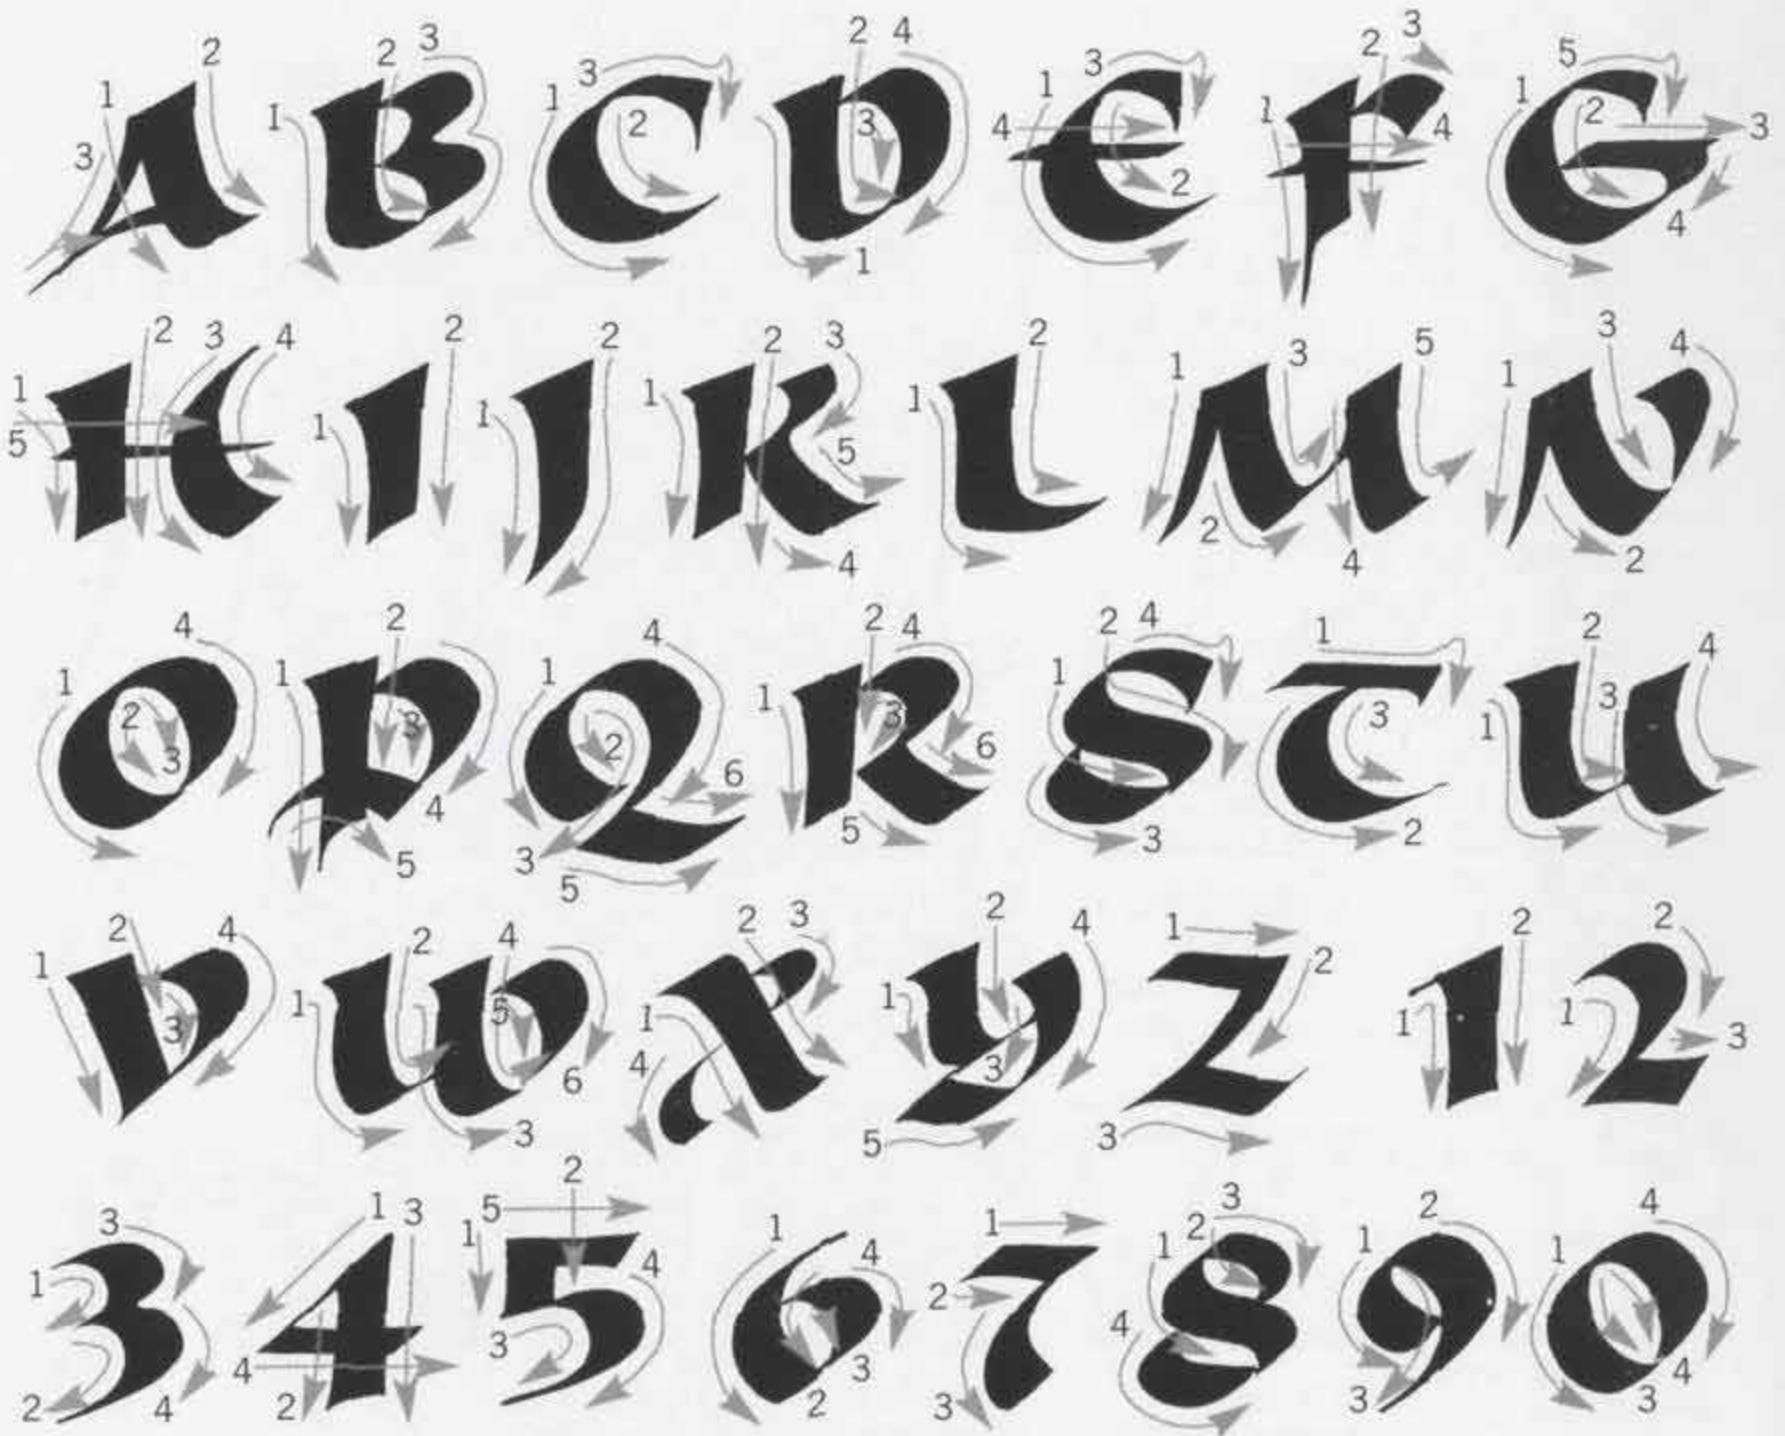 A B C D E F G
H I J K L M N
O P Q R S T U
V W X Y Z 1 2
3 4 5 6 7 8 9 0